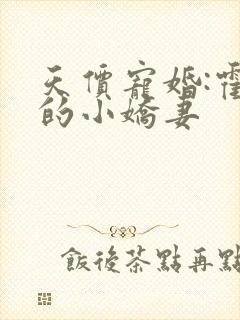 天價寵婚:霍
的小嬌妻
飯後茶點再點